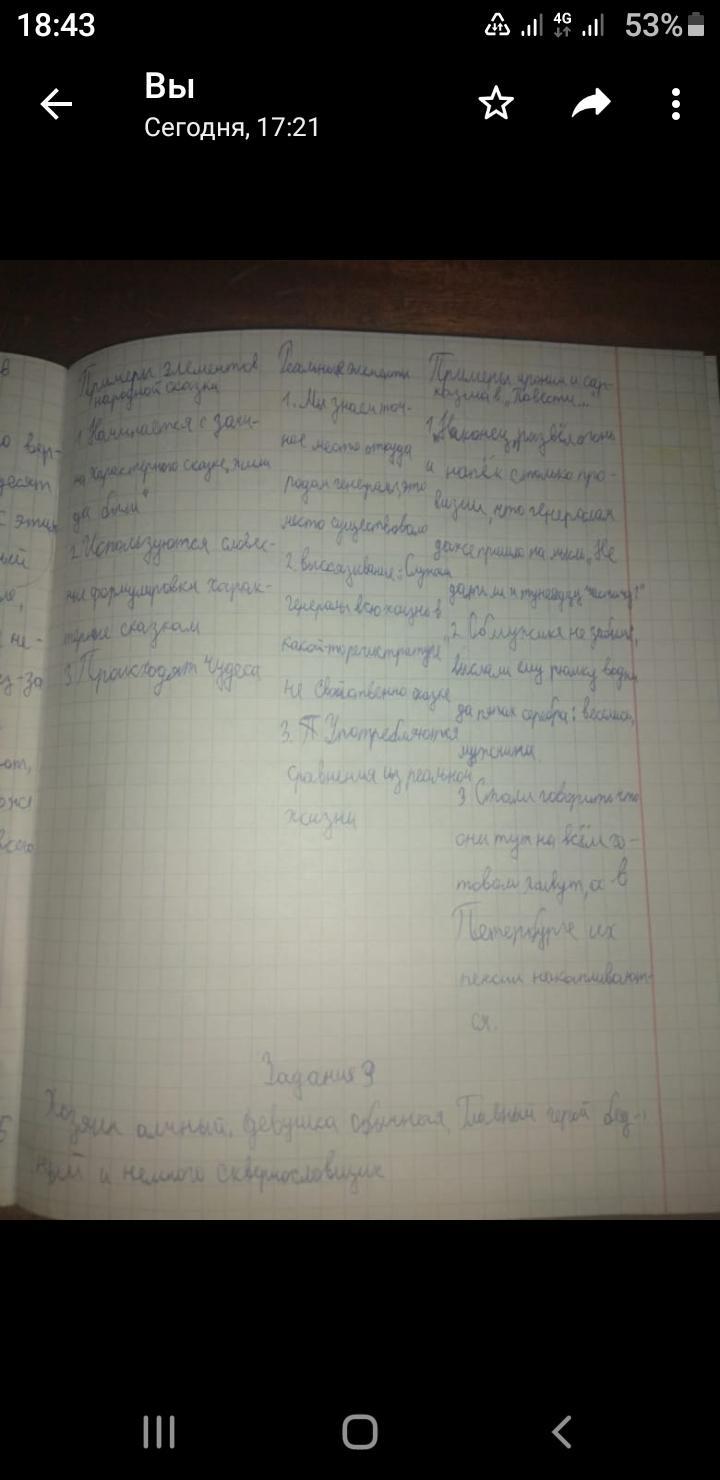 18:43
4G
53%
Вы
Сегодня, 17:21
Примеры элементов
народной сказки
1 Начинается с зачи-
на характерного сказке, жили
да были"
2 Используются словес-
ные формулировки харак-
терные сказкам
3 Происходят чудеса
Реальные элементы
1. Мы знаем точ-
ное место откуда
родом генералы, это
место существовало
2. высказывание: Служили
генералы всю жизнь в
какой-то регистратуре
не свойственно сказке
3. Употребляются
сравнения из реальной
жизни
Примеры иронии и сар-
казма в "Повести..."
1 "Наконец, развёл огонь
и напёк столько про-
визии, что генералам
даже пришло на мысль "Не
дать ли и тунеядцу частичку?"
2. Об мужике не забыли,
выслали ему рюмку водки
да пятак серебра: веселись,
мужчина
3 Стали говорить что
они тут на всём го-
товом живут, а в
Петербурге их
пенсии накапливают-
ся.
Задания 3
Хозяин алчный. Девушка обычная, Главный герой бед-
ный и немного сквернословщик